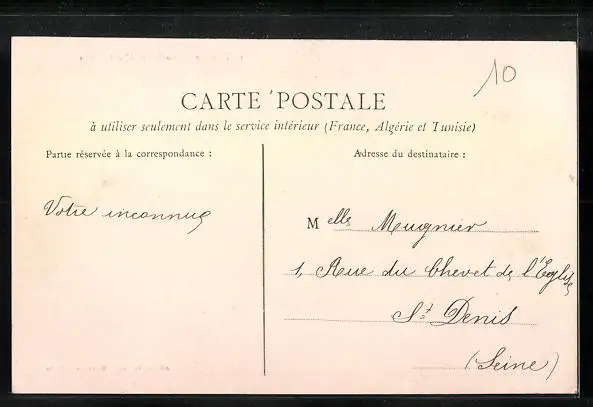 10
CARTE POSTALE
à utiliser seulement dans le service intérieur (France, Algérie et Tunisie)
Partie réservée à la correspondance :
Adresse du destinataire :
Votre inconnue
Melle Mugnier
1, Rue du Chevet de l'Eglise
St Denis
(Seine)